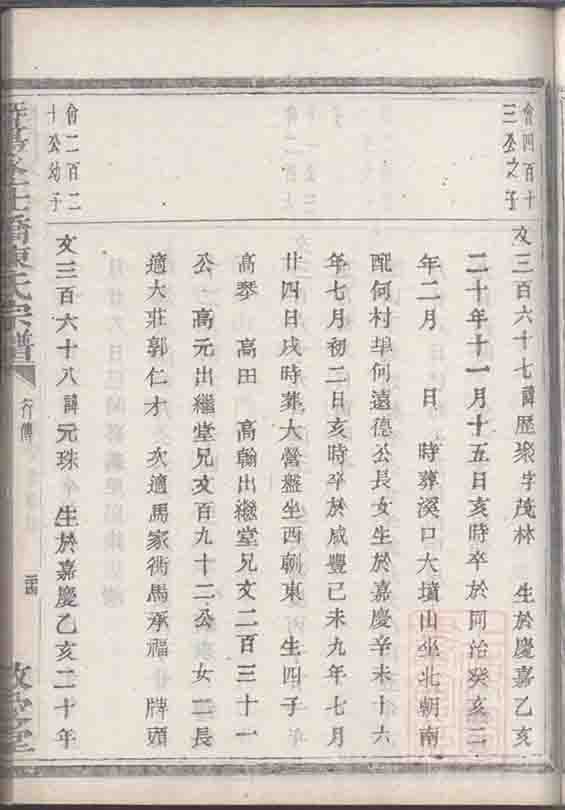 會四百十
三公之子
文三百六十七諱歷聚字茂林　生於慶嘉乙亥
二十年十一月十五日亥時卒於同治癸亥二
年二月　日　時葬溪口大墳山坐北朝南
配何村埠何遠德公長女生於嘉慶辛未十六
年七月初二日亥時卒於咸豐己未九年七月
廿四日戌時葬大營盤坐西朝東　生四子
高琴　高田　高翰出繼堂兄文二百三十一
公　高元出繼堂兄文百九十二公　女二長
適大莊郭仁才　次適馬家衖馬承福　牌頭
會二百二
十公幼子
文三百六十八諱元珠　生於嘉慶乙亥二十年
橋陳氏宗譜
行傳